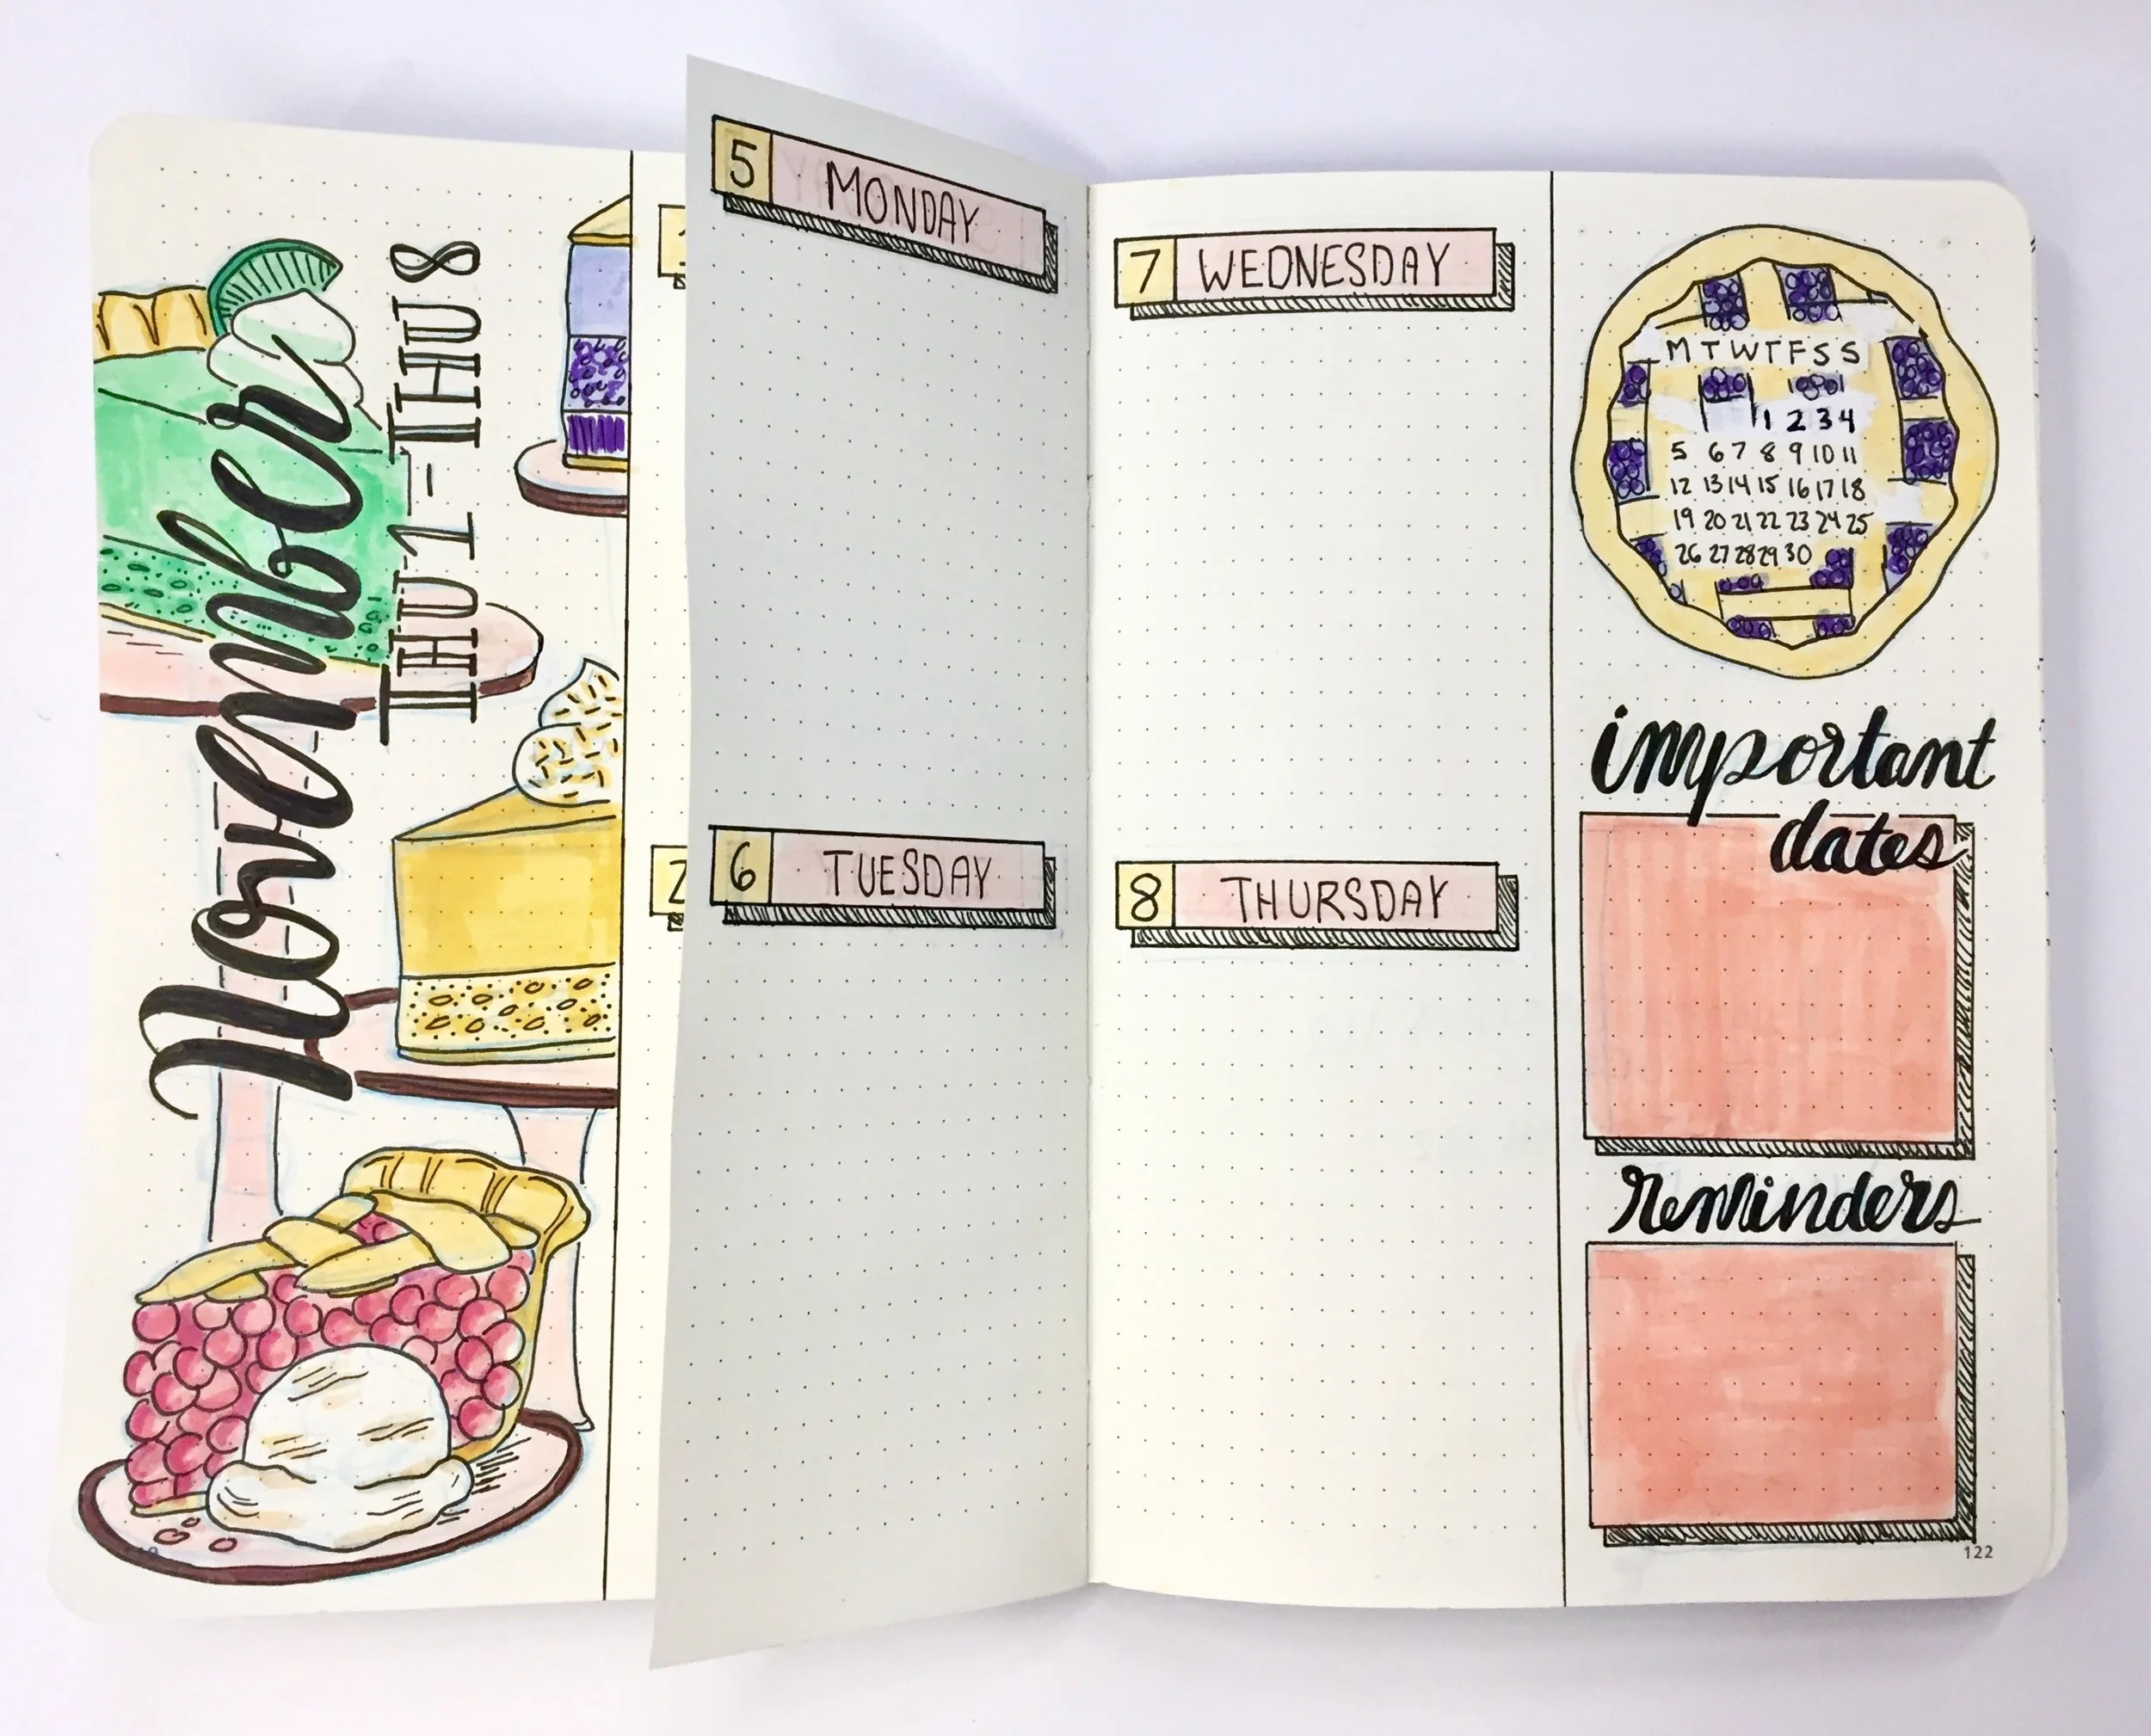 November
THU 1 - THU 8
5 MONDAY
6 TUESDAY
7 WEDNESDAY
8 THURSDAY
M T W T F S S
1 2 3 4
5 6 7 8 9 10 11
12 13 14 15 16 17 18
19 20 21 22 23 24 25
26 27 28 29 30
important
dates
Reminders
122